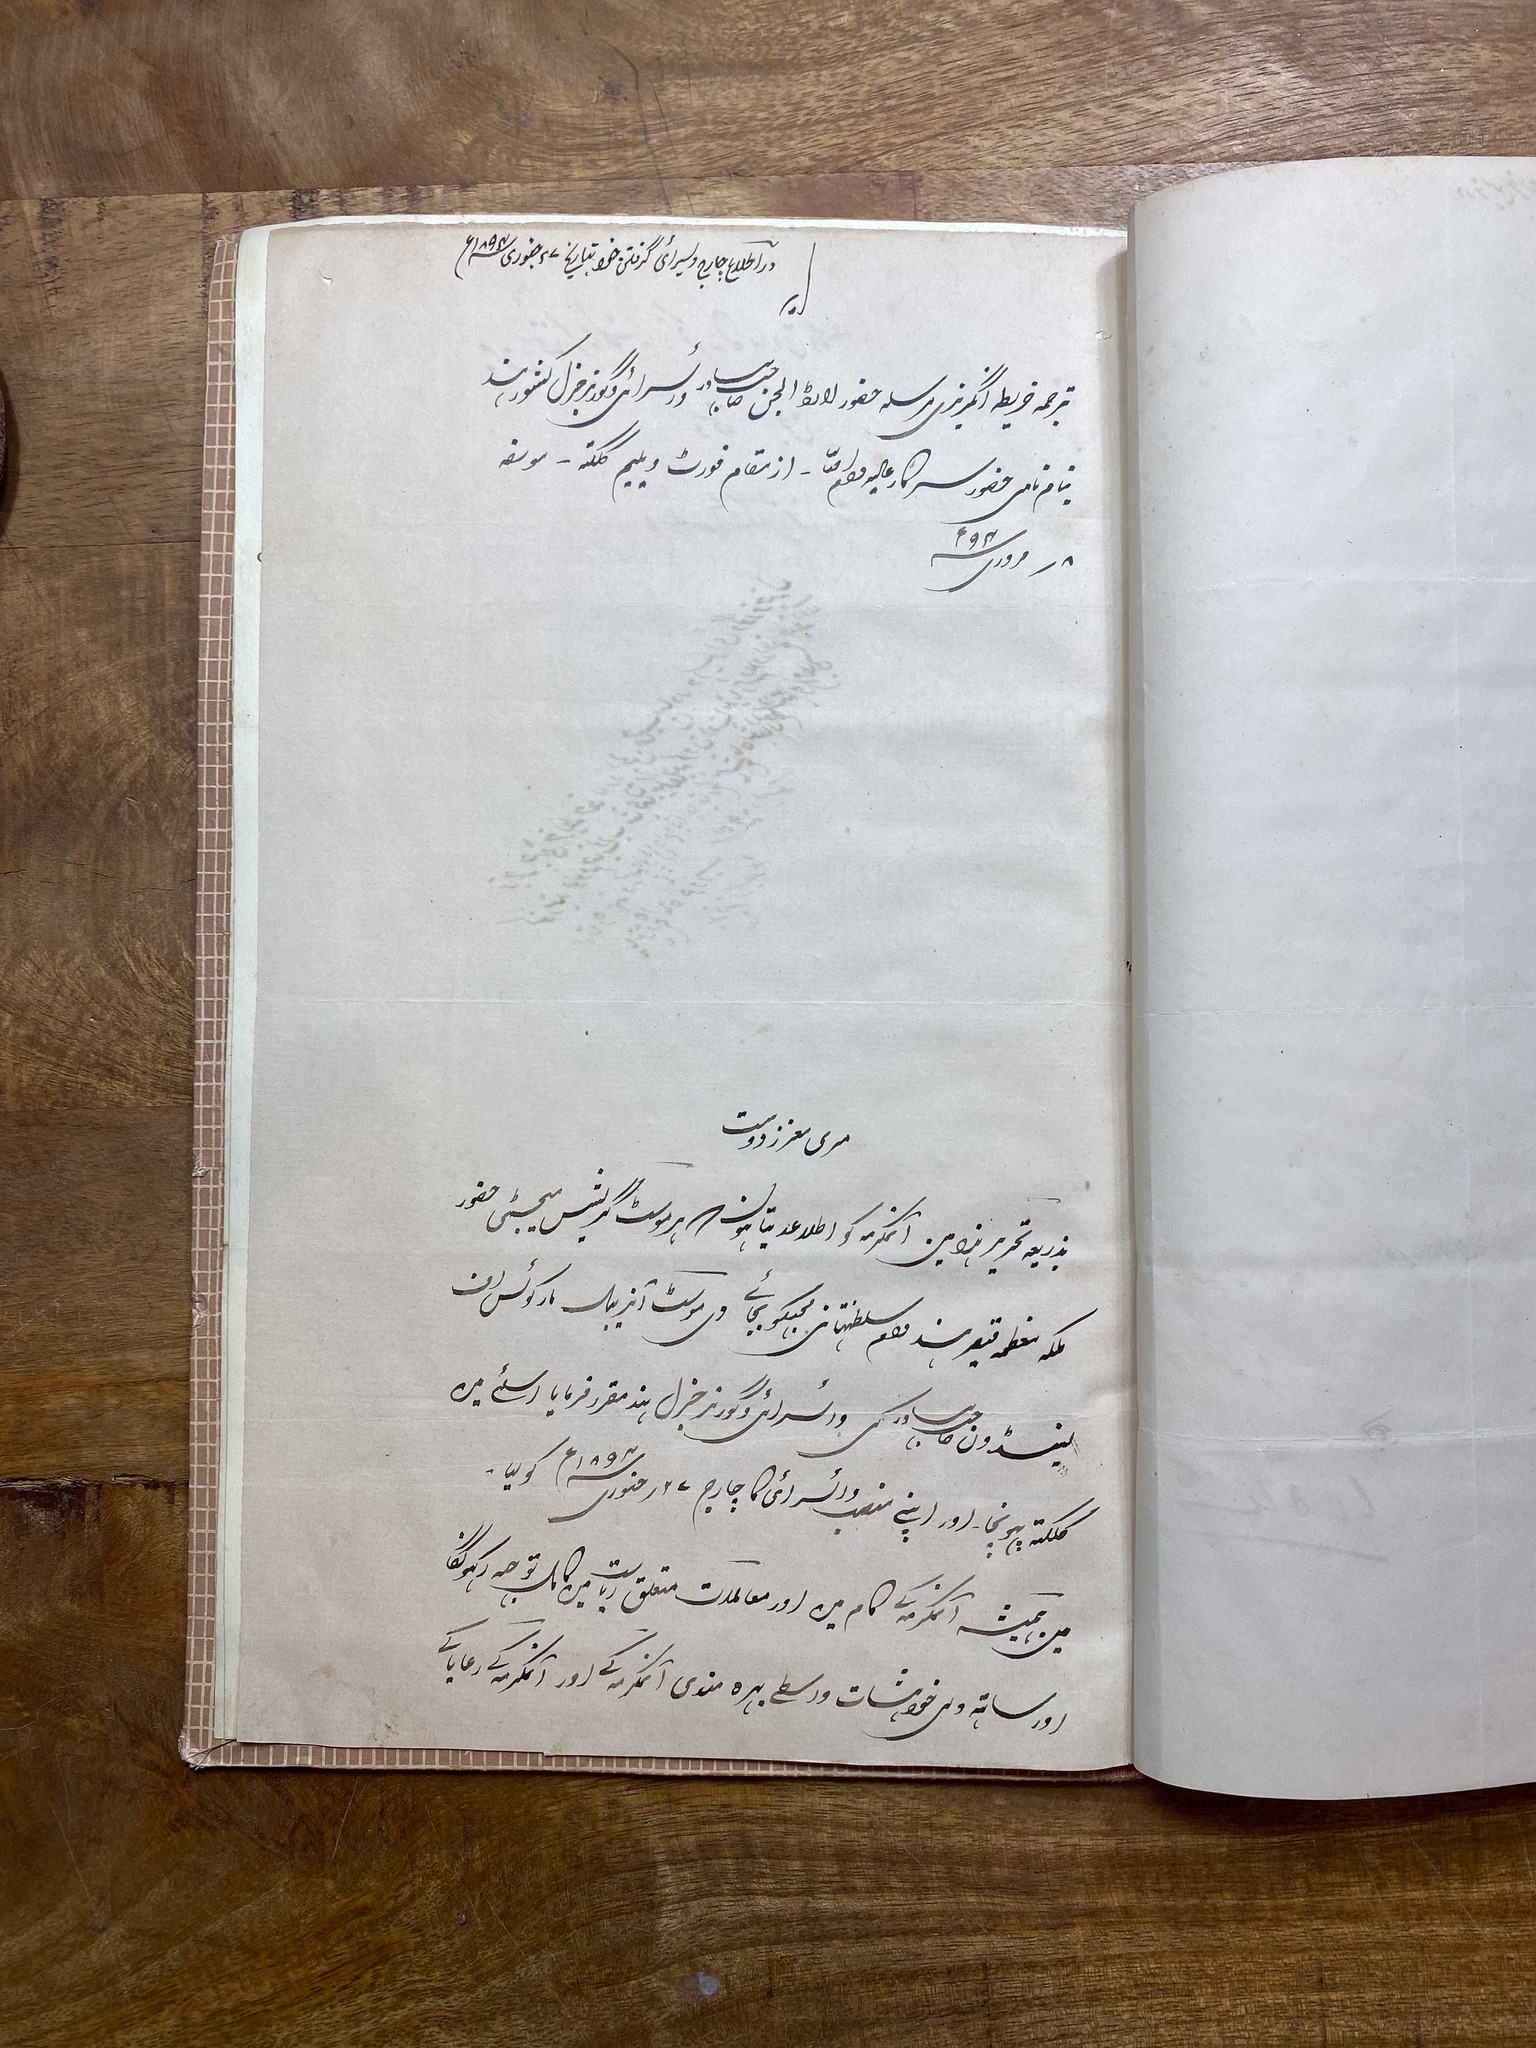 در اطلاع چارج ویسرای گرفتن خود بتاریخ ۲۷ جنوری سنه ۱۸۹۴ع
ترجمہ خریطہ انگریزی مرسلہ حضور لارڈ الجن صاحب بہادر وائسرائے و گورنر جنرل کشور ہند
بنام نامی حضور سرکار عالیہ دام اقبالہا - از مقام فورٹ ولیم کلکتہ - مورخہ
۸ر فروری سنہ ۹۴ع
میری معزز دوست
بذریعہ تحریر ہذا مین آنمکرمہ کو اطلاع دیتا ہون کہ ہر موسٹ گریشس میجسٹی حضور
ملکہ معظمہ قیصر ہند دام سلطنتہا نی مجہکو بجائے دی موسٹ آنریبل مارکوئس اف
لینسڈون صاحب بہادر کی وائسرائے و گورنر جنرل ہند مقرر فرمایا اسلئے مین
کلکتہ پہونچا - اور اپنے منصب وائسرائی کا چارج ۲۷ر جنوری سنہ ۱۸۹۴ع کو لیا -
مین ہمیشہ آنمکرمہ کے کام مین اور معاملات متعلق ریاست مین کامل توجہ رکہونگا
اور ساتہ دلی خواہشات واسطے بہرہ مندی آنمکرمہ کے اور آنمکرمہ کے رعایا کے